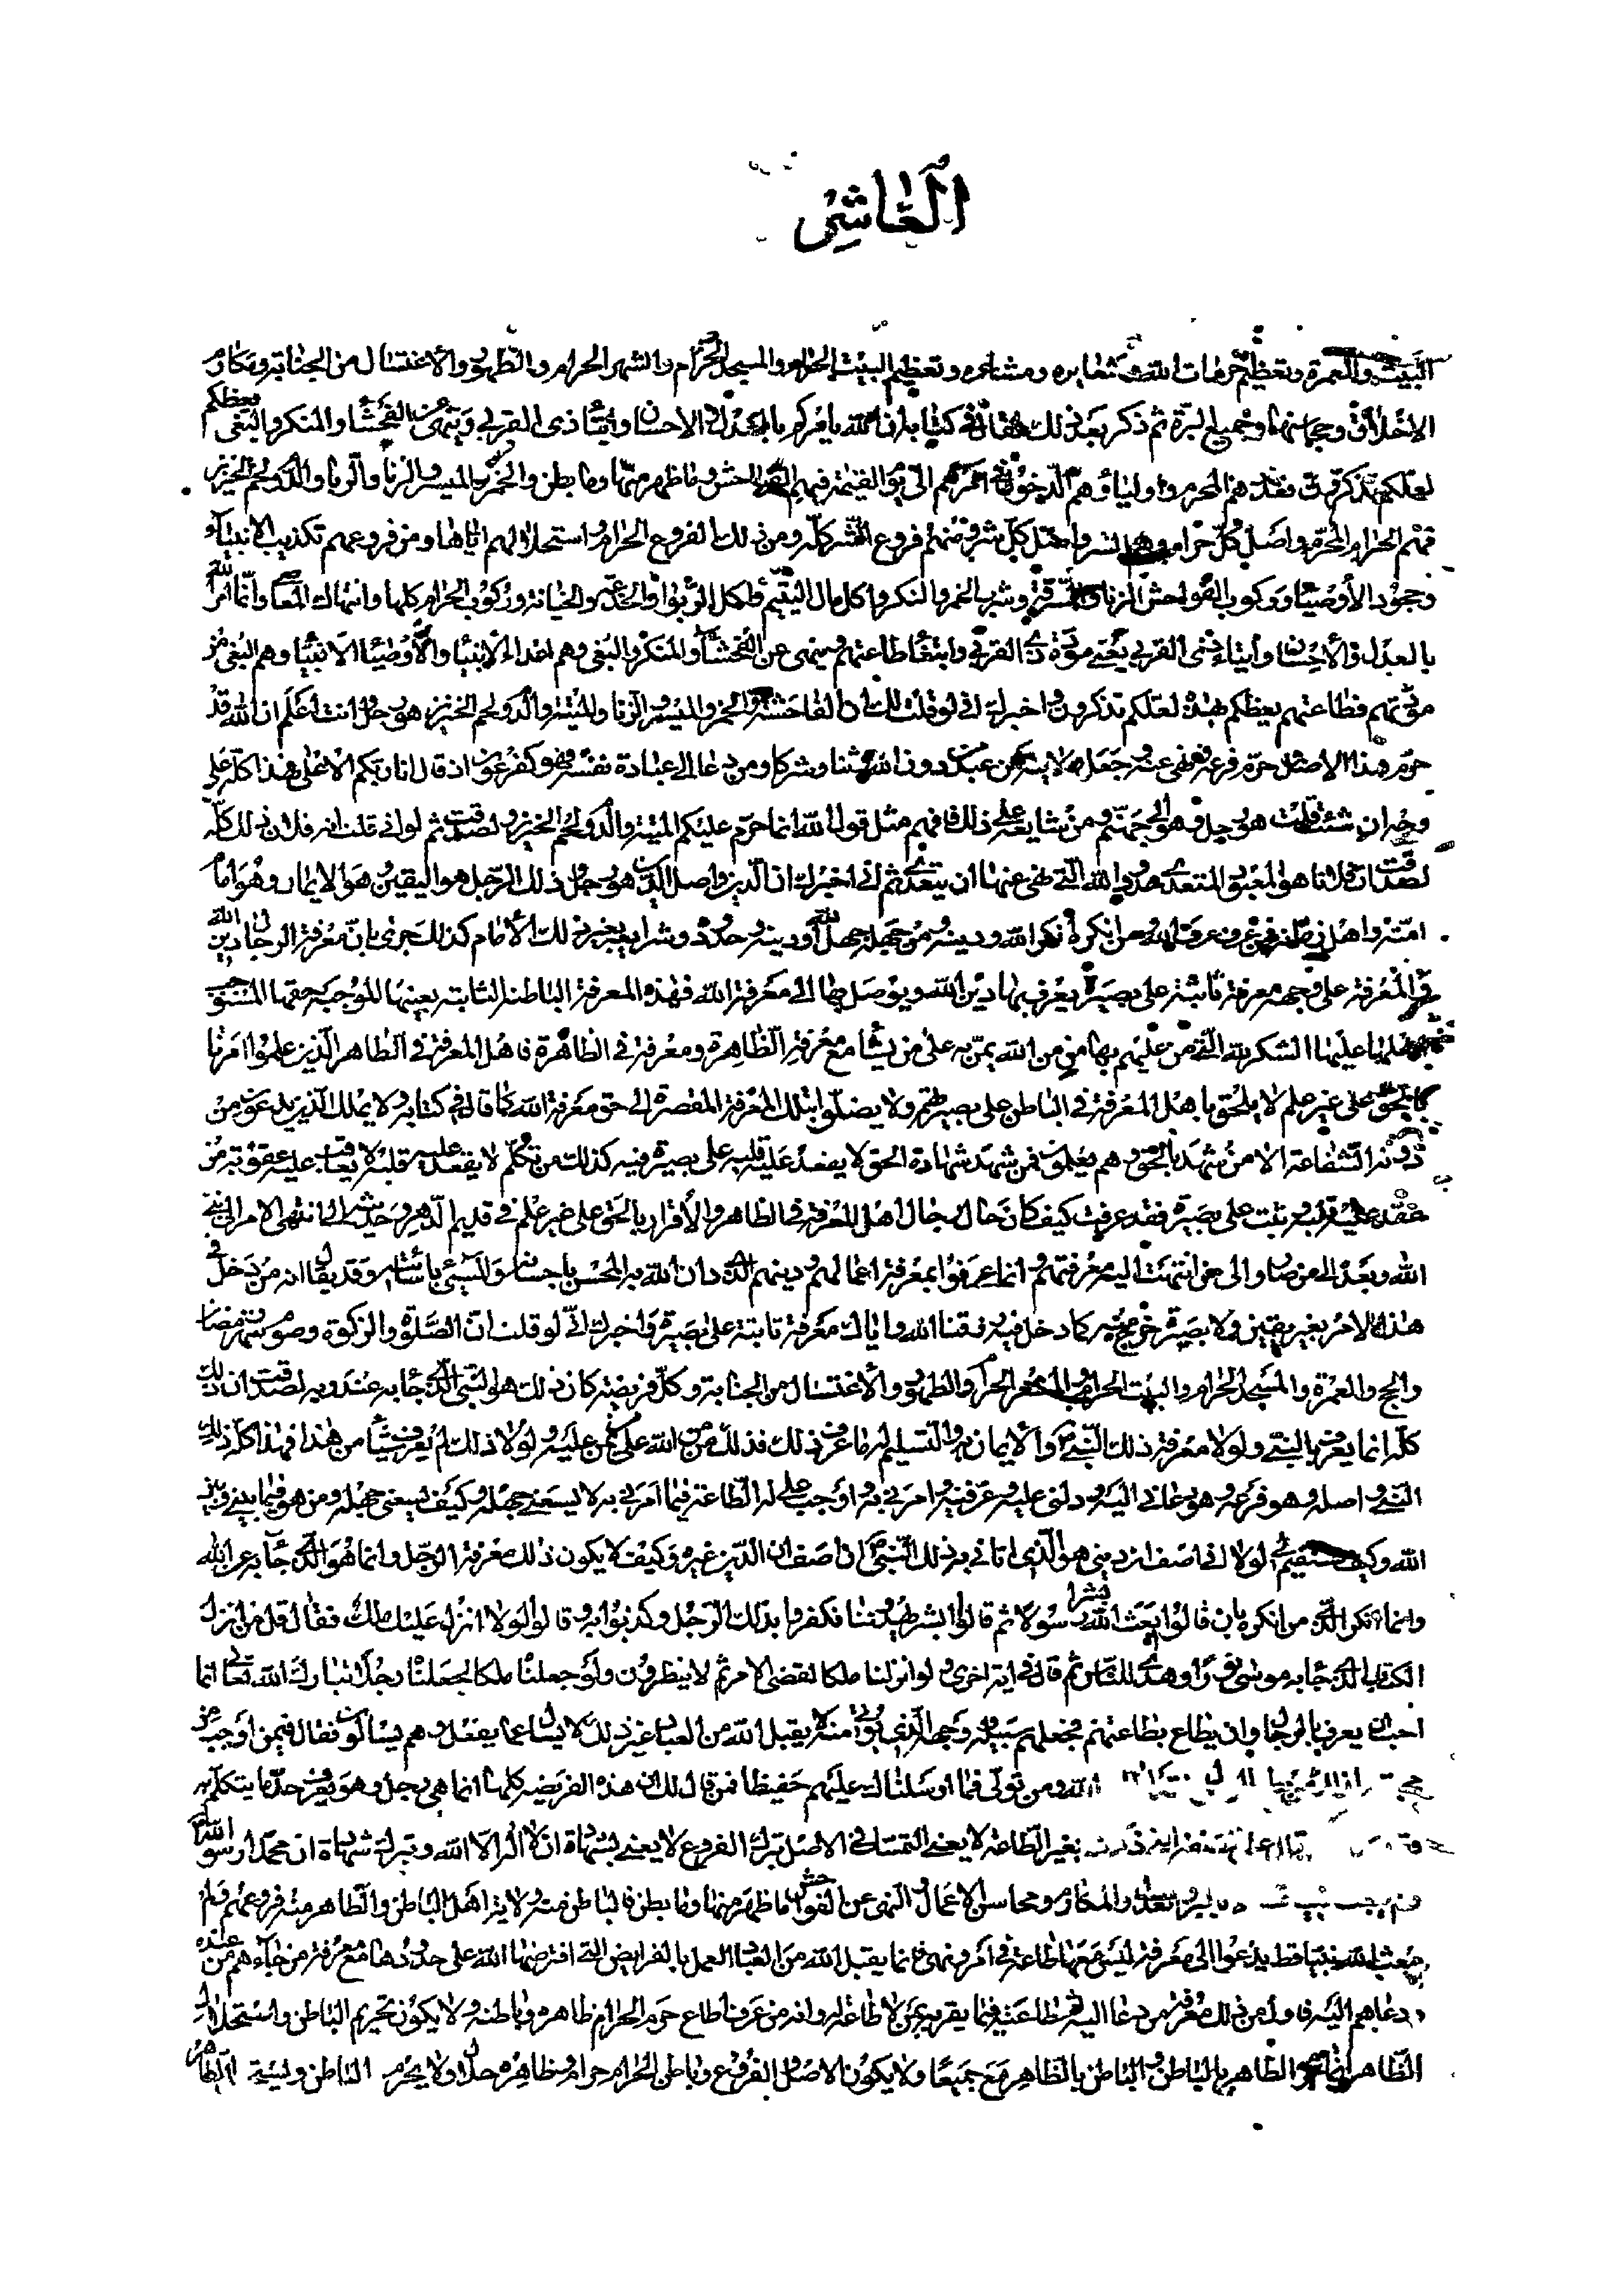 العاشر
البيت والعمرة وتعظيم حرمات الله وشعايره ومشاعره وتعظيم البيت الحرام والمسجد الحرام والشهر الحرام والطهور والاغتسال من الجنابة ومكارم
الاخلاق ومحاسنها وجميع البر ثم ذكر بعد ذلك فقال في كتابه ان الله يامر بالعدل والاحسان وايتاء ذي القربى وينهى عن الفحشاء والمنكر والبغي يعظكم
لعلكم تذكرون فعدوهم هم المحرم واولياؤهم الدخول في امرهم الى يوم القيمة فهم الفواحش ما ظهر منها وما بطن والخمر والميسر والزنا والربا والدم ولحم الخنزير
فهم الحرام المحرم واصل كل حرام وهم الشر واصل كل شر ومنهم فروع الشر كله ومن ذلك الفروع الحرام واستحلالهم اياها ومن فروعهم تكذيب الانبياء
وجحود الاوصياء وركوب الفواحش الزنا والسرقة وشرب الخمر والمنكر واكل مال اليتيم واكل الربوا والخدعة والخيانة وركوب الحرام كلها وانتهاك المعاصي وانما امر الله
بالعدل والاحسان وايتاء ذي القربى يعني مودة ذي القربى وابتغاء طاعتهم وينهى عن الفحشاء والمنكر والبغي وهم اعداء الانبياء والاوصياء الانبياء وهم البغي من
مودتهم فطاعتهم يعظكم بهذه لعلكم تذكرون واخبرك اني لو قلت لك ان الفاحشة والخمر والميسر والزنا والميتة والدم ولحم الخنزير هو رجل وانت اعلم ان الله قد
حرم هذا الاصل وحرم فرعه ونهى عنه وجعل ولايته كمن عبد من دون الله وثنا وشركا ومن دعا الى عبادة نفسه فهو كفرعون اذ قال انا ربكم الاعلى فهذا كله على
وجه ان شئت قلت هو رجل وهو الى جهنم ومن شايعه على ذلك فافهم مثل قول الله انما حرم عليكم الميتة والدم ولحم الخنزير ولصدقت ثم لو اني قلت انه فلان ذلك كله
لصدقت ان فلانا هو المعبود المتعدي حدود الله التي نهى عنها ان يتعدى ثم اني اخبرك ان الدين واصل الدين هو رجل وذلك الرجل هو اليقين وهو الايمان وهو امام
امته واهل زمانه فمن عرفه عرف الله ومن انكره انكر الله ودينه ومن جهله جهل الله ودينه وحدوده وشرايعه بغير ذلك الامام كذلك جرى بان معرفة الرجال دين الله
والمعرفة على وجهه معرفة ثابتة على بصيرة يعرف بها دين الله ويوصل بها الى معرفة الله فهذه المعرفة الباطنة الثابتة بعينها الموجبة حقها المستوجب
اهلها عليها الشكر لله التي من عليهم بها من من الله يمن به على من يشاء مع معرفة الظاهرة ومعرفة في الظاهرة فاهل المعرفة في الظاهر الذين علموا امرنا
بالحق على غير علم لا يلحق باهل المعرفة في الباطن على بصيرتهم ولا يصلوا بتلك المعرفة المقصرة الى حق معرفة الله كما قال في كتابه ولا يملك الذين يدعون من
دونه الشفاعة الا من شهد بالحق وهم يعلمون فمن شهد شهادة الحق لا يعقد عليه قلبه على بصيرة فيه كذلك من تكلم لا يعقد عليه قلبه لا يعاقب عليه عقوبة من
عقد عليه قلبه وثبت على بصيرة فقد عرفت كيف كان حال رجال اهل المعرفة في الظاهر والاقرار بالحق على غير علم في قديم الدهر وحديثه الى ان انتهى الامر الى نبي
الله وبعده الى من صار والى من انتهت اليه معرفتهم وانما عرفوا بمعرفة اعمالهم ودينهم الذي دان الله به المحسن باحسانه والمسيء باساءته وقد يقال انه من دخل في
هذا الامر بغير يقين ولا بصيرة خرج منه كما دخل فيه رزقنا الله واياك معرفة ثابتة على بصيرة واخبرك اني لو قلت ان الصلوة والزكوة وصوم شهر رمضان
والحج والعمرة والمسجد الحرام والبيت الحرام والمشعر الحرام والطهور والاغتسال من الجنابة وكل فريضة كان ذلك هو النبي الذي جاء به عند ربه لصدقت ان ذلك
كله انما يعرف بالنبي ولولا معرفة ذلك النبي والايمان به والتسليم له ما عرف ذلك فذلك من من الله على من يمن عليه ولولا ذلك لم يعرف شيئا من هذا فهذا كله ذلك
النبي واصله وهو فرعه وهو دعاني اليه ودلني عليه وعرفنيه وامرني به واوجب علي له الطاعة فيما امرني به لا يسعني جهله وكيف يسعني جهله ومن هو فيما بيني وبين
الله وكيف يستقيم لي لولا اني اصف ان ديني هو الذي اتاني به ذلك النبي ان اصف ان الدين غيره وكيف لا يكون ذلك معرفة الرجل وانما هو الذي جاء به عن الله
وانما انكر الذي من انكره بان قالوا ابعث الله بشرا رسولا ثم قالوا ابشر يهدوننا فكفروا بذلك الرجل وكذبوا به وقالوا لولا انزل عليه ملك فقال قل من انزل
الكتاب الذي جاء به موسى نورا وهدى للناس ثم قال في اية اخرى ولو انزلنا ملكا لقضي الامر ثم لا ينظرون ولو جعلناه ملكا لجعلناه رجلا تبارك الله تعالى انما
احب ان يعرف بالرجال وان يطاع بطاعتهم فجعلهم سبيله ووجهه الذي يؤتى منه لا يقبل الله من العباد غير ذلك لا يسال عما يفعل وهم يسالون فقال فيمن اوجب من
الله ومن تولى فما ارسلناك عليهم حفيظا فمن قال لك ان هذه الفريضة كلها انما هي رجل وهو يعرف حد ما يتكلم به
بغير الطاعة لا يعني التمسك في الاصل بترك الفروع لا يعني بشهادة ان لا اله الا الله وبترك شهادة ان محمدا رسول الله
بالبر والعدل والمكارم ومحاسن الاعمال والنهي عن الفواحش ما ظهر منها وما بطن فالباطن منه ولاية اهل الباطن والظاهر منه فروعهم ولم
يبعث الله نبيا قط يدعوا الى معرفة ليس معها طاعة في امر ونهي فانما يقبل الله من العباد العمل بالفرايض التي افترضها الله على حدودها مع معرفة من جاءهم من عنده
ودعاهم اليه فاول من ذلك معرفة من دعا اليه ثم طاعته فيما يقربه بمن لا طاعة له وانه من عرف اطاع حرم الحرام ظاهره وباطنه ولا يكون تحريم الباطن واستحلال
الظاهر انما حرم الظاهر بالباطن والباطن بالظاهر مع جميعا ولا يكون الاصل والفروع وباطن الحرام حرام وظاهره حلال ولا يحرم الباطن ويستحل الظاهر